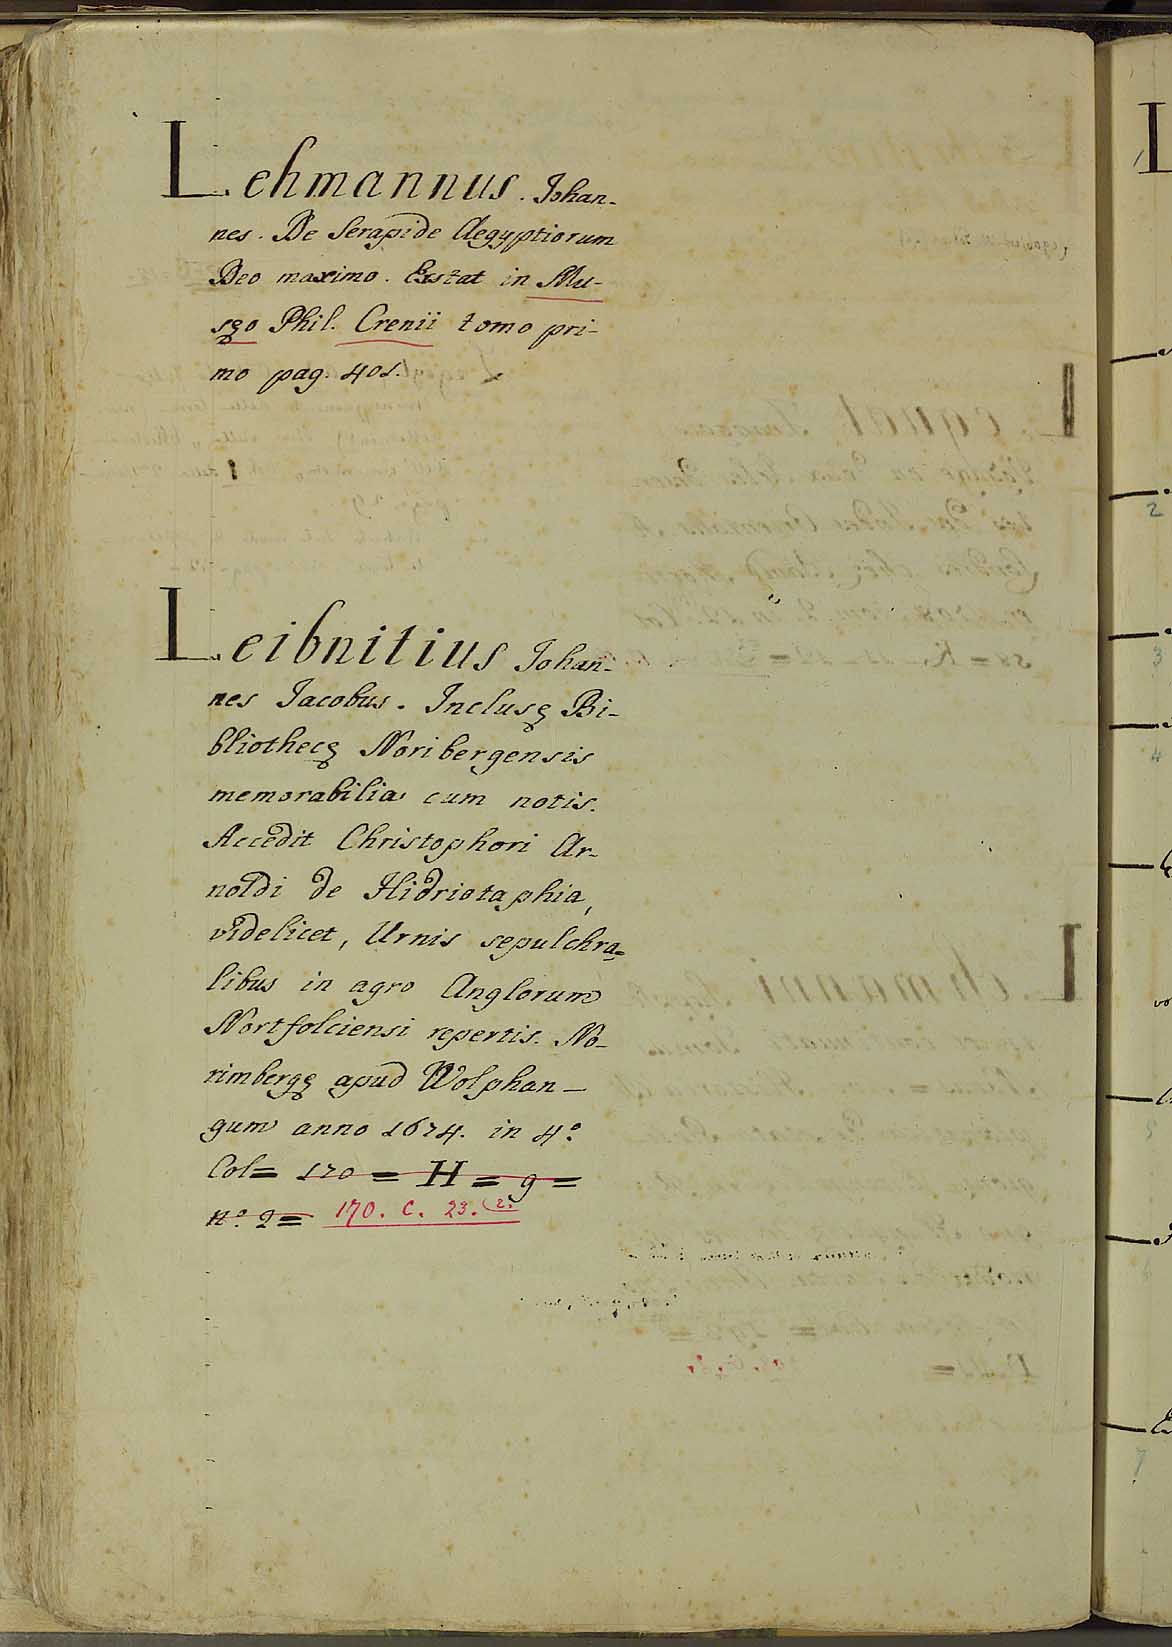 Lehmannus. Johan-
nes. De Serapide Aegyptiorum
Deo maximo. Exstat in Mu-
sęo Phil. Crenii tomo pri-
mo pag. 401.
Leibnitius Johan-
nes Jacobus. Inclusę Bi-
bliothecę Noribergensis
memorabilia cum notis.
Accedit Christophori Ar-
noldi de Hidriotaphia,
videlicet, Urnis sepulchra-
libus in agro Anglorum
Nortfolciensi repertis. No-
rimbergę apud Wolphan-
gum anno 1674. in 4º
Col= 170 = H = 9 =
nº. 2= 170. C. 23. (2.